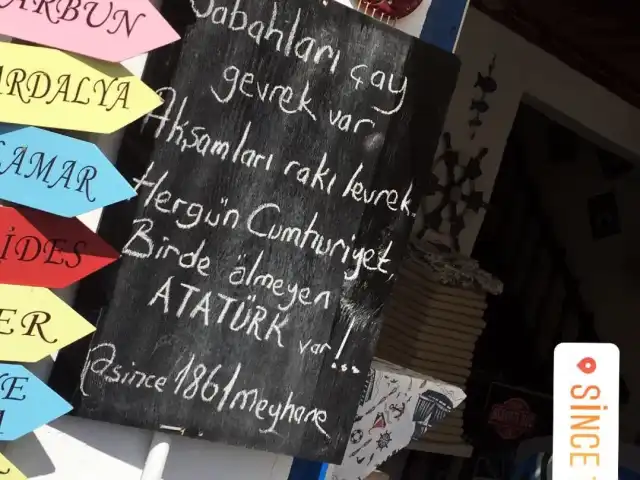 ARBUN
ARDALYA
AMAR
İDES
ER
E
Sabahları çay
gevrek var
Akşamları rakı levrek.
Hergün Cumhuriyet,
Birde ölmeyen
ATATÜRK var!..
@since1861meyhane
SİNCE